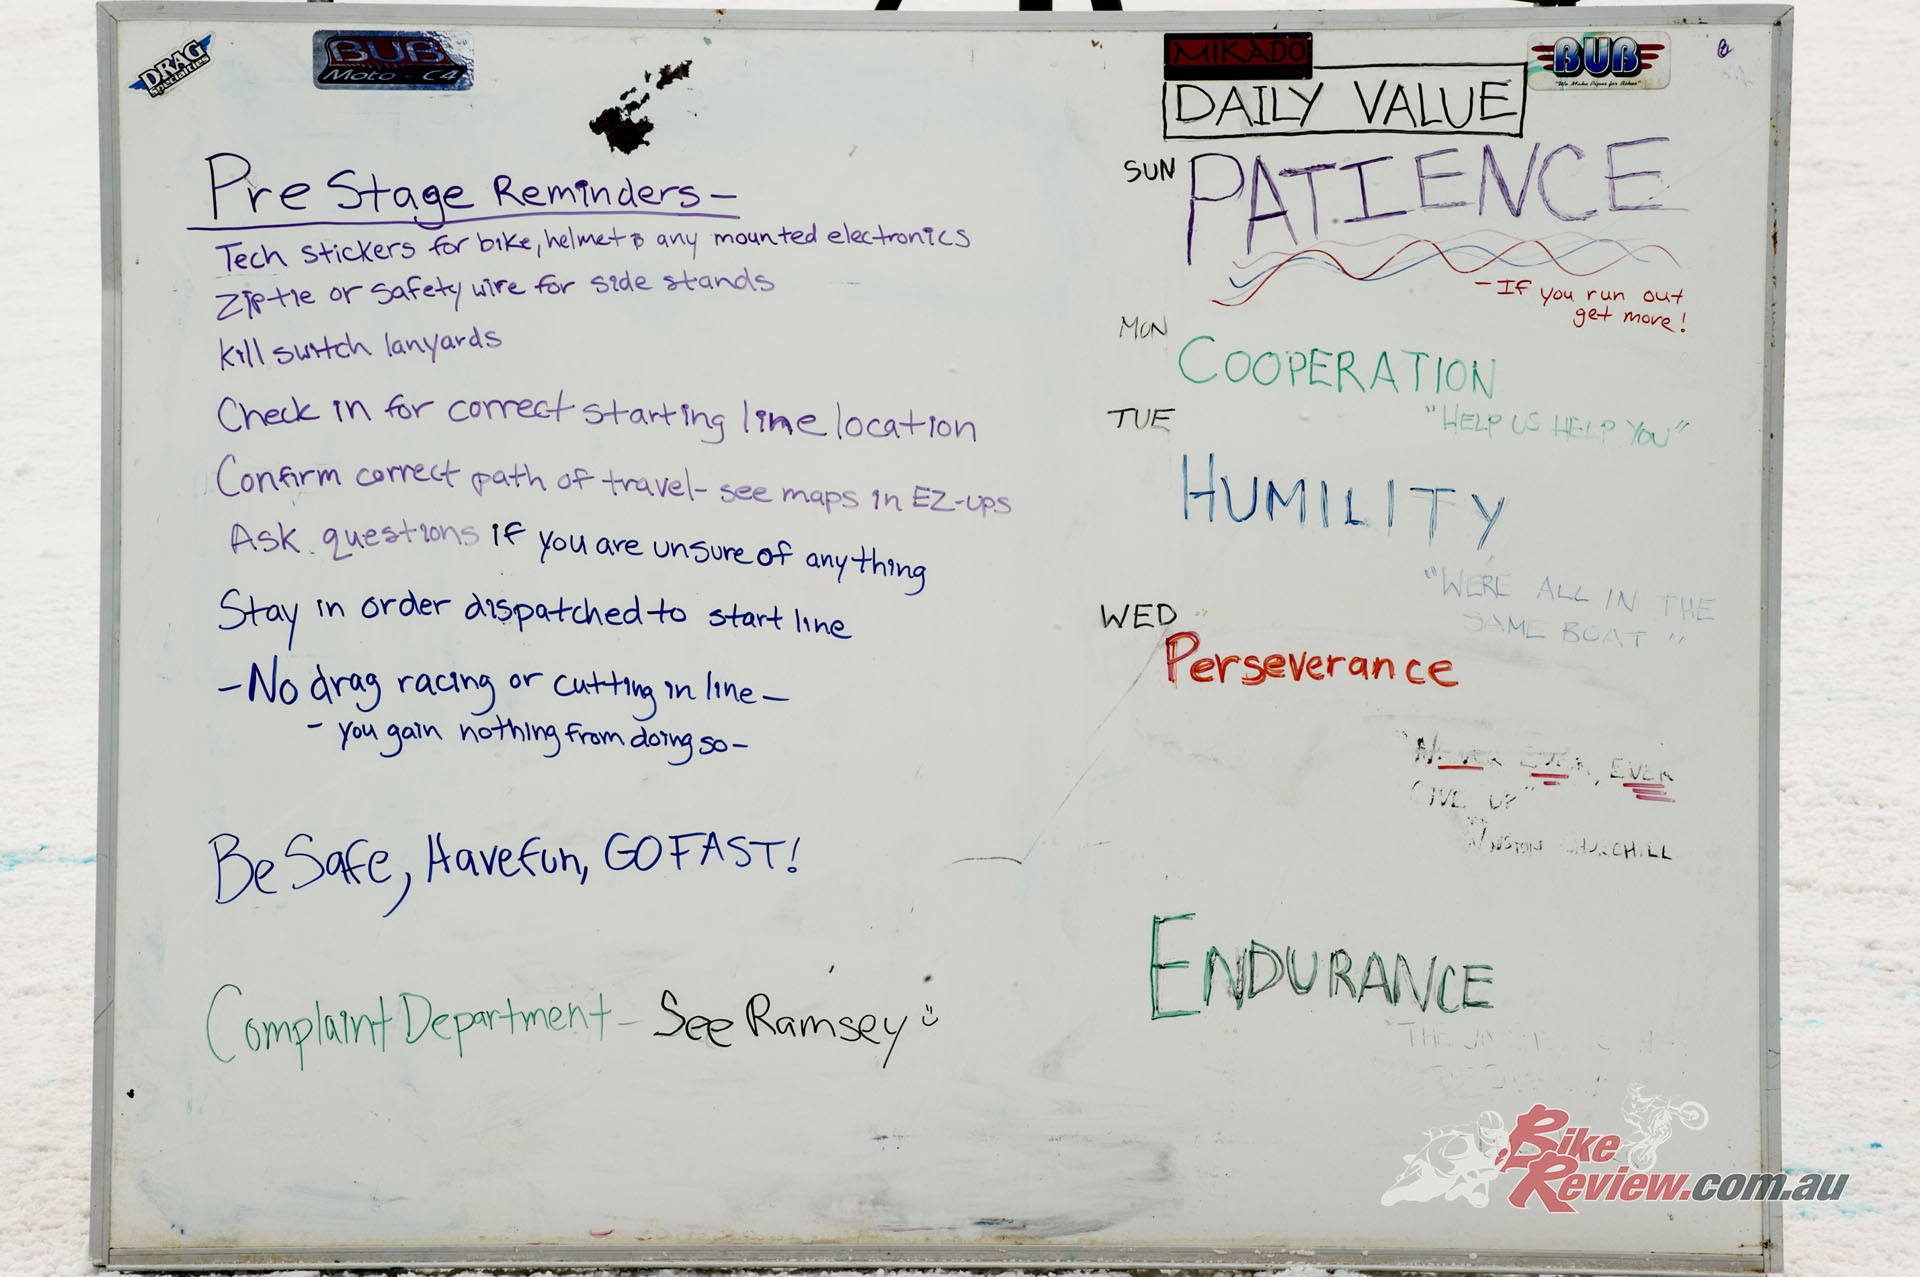 DRAG
Specialties
BUB
Moto - C4
Pre Stage Reminders -
Tech stickers for bike, helmet & any mounted electronics
Ziptie or safety wire for side stands
kill switch lanyards
Check in for correct starting line location
Confirm correct path of travel - see maps in EZ-ups
Ask questions if you are unsure of anything
Stay in order dispatched to start line
- No drag racing or cutting in line -
- you gain nothing from doing so -
Be Safe, Have fun, GO FAST!
Complaint Department - See Ramsey
MIKADO
BUB
DAILY VALUE
SUN PATIENCE
- If you run out
get more!
MON
COOPERATION
"HELP US HELP YOU"
TUE
HUMILITY
"WE'RE ALL IN THE
SAME BOAT"
WED
Perseverance
"NEVER EVER, EVER
GIVE UP"
WINSTON CHURCHILL
ENDURANCE
THE
Bike
Review.com.au